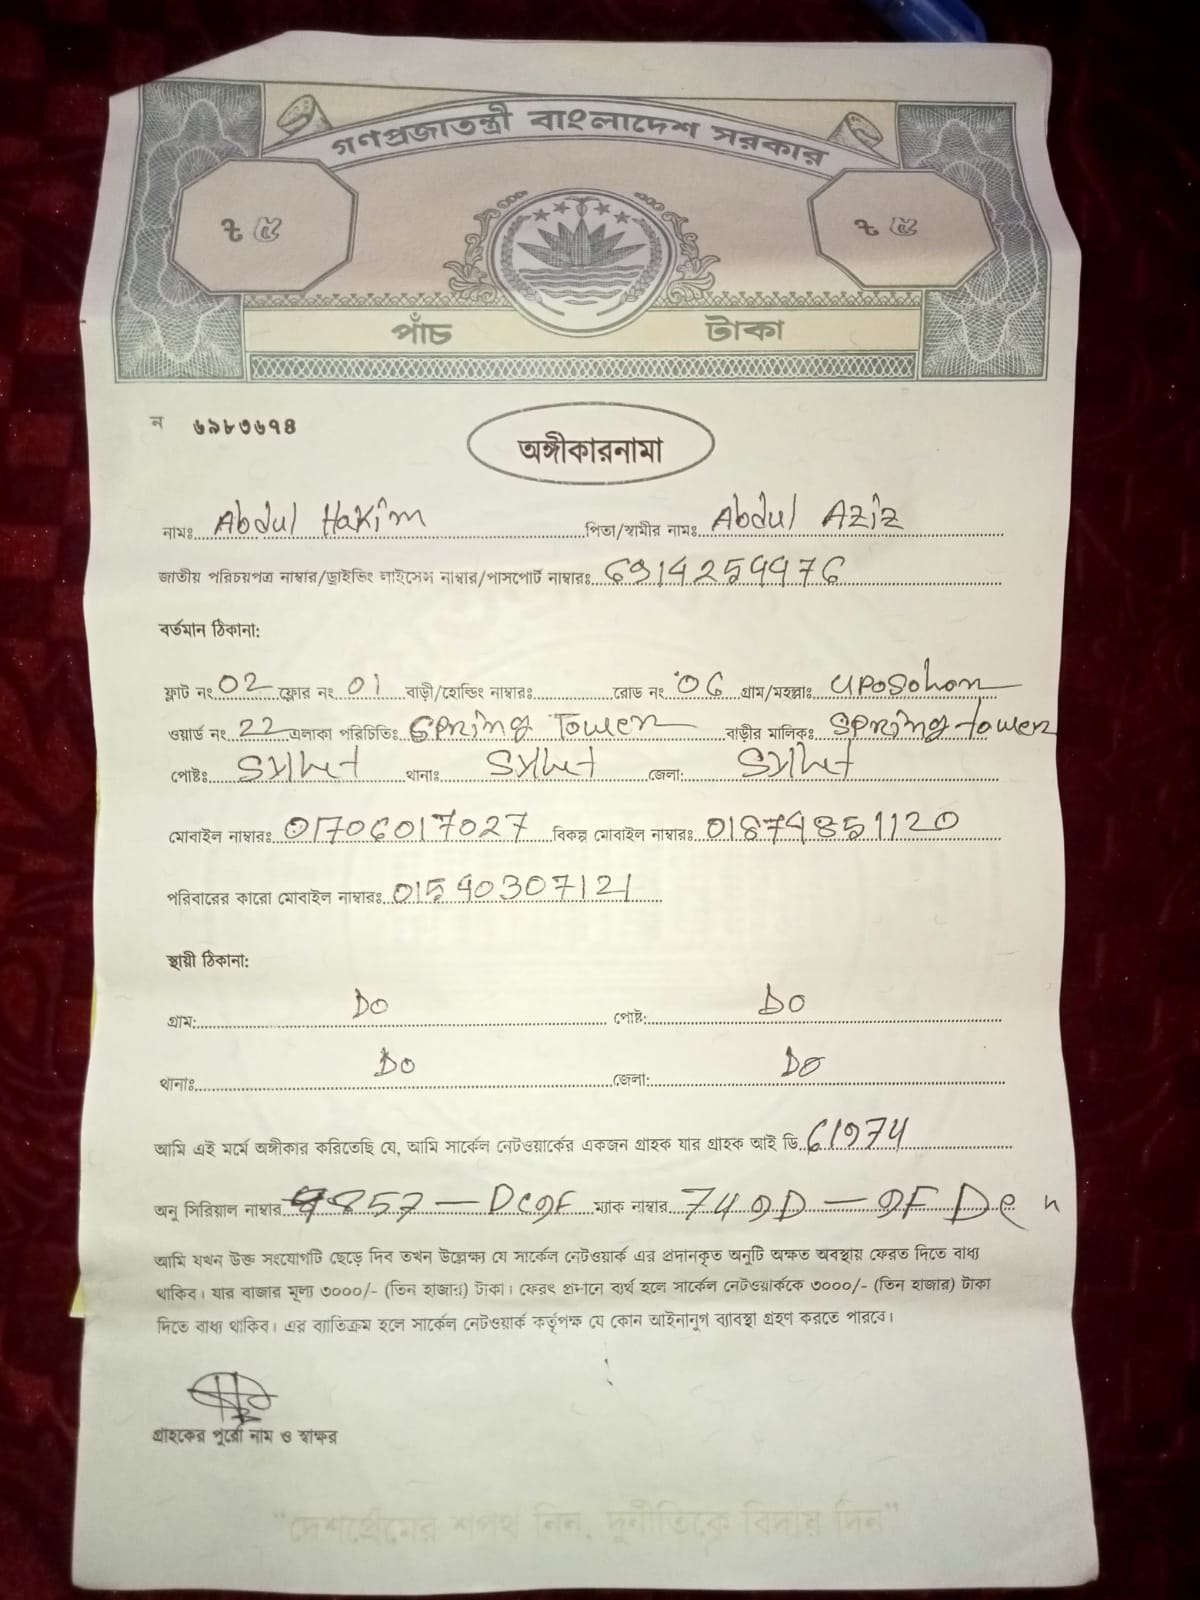 গণপ্রজাতন্ত্রী বাংলাদেশ সরকার
৳ ৫ ৳ ৫
পাঁচ টাকা
ন ৬৯৮৩৬৭৪
অঙ্গীকারনামা
নামঃ Abdul Hakim পিতা/স্বামীর নামঃ Abdul Aziz
জাতীয় পরিচয়পত্র নাম্বার/ড্রাইভিং লাইসেন্স নাম্বার/পাসপোর্ট নাম্বারঃ
বর্তমান ঠিকানা:
ফ্লাট নং 02 ফ্লোর নং 01 বাড়ী/হোল্ডিং নাম্বারঃ রোড নং 06 গ্রাম/মহল্লাঃ Uposohon
ওয়ার্ড নং 22 এলাকা পরিচিতিঃ Spring Tower বাড়ীর মালিকঃ Spring tower
পোষ্টঃ Sylhet থানাঃ Sylhet জেলা: Sylhet
মোবাইল নাম্বারঃ 01706017027 বিকল্প মোবাইল নাম্বারঃ
পরিবারের কারো মোবাইল নাম্বারঃ 01540307121
স্থায়ী ঠিকানা:
গ্রাম: DO পোষ্ট: DO
থানাঃ DO জেলা: DO
আমি এই মর্মে অঙ্গীকার করিতেছি যে, আমি সার্কেল নেটওয়ার্কের একজন গ্রাহক যার গ্রাহক আই ডি 61974
অনু সিরিয়াল নাম্বার ম্যাক নাম্বার
আমি যখন উক্ত সংযোগটি ছেড়ে দিব তখন উল্লেক্ষ্য যে সার্কেল নেটওয়ার্ক এর প্রদানকৃত অনুটি অক্ষত অবস্থায় ফেরত দিতে বাধ্য
থাকিব। যার বাজার মূল্য ৩০০০/- (তিন হাজার) টাকা। ফেরৎ প্রদানে ব্যর্থ হলে সার্কেল নেটওয়ার্ককে ৩০০০/- (তিন হাজার) টাকা
দিতে বাধ্য থাকিব। এর ব্যাতিক্রম হলে সার্কেল নেটওয়ার্ক কর্তৃপক্ষ যে কোন আইনানুগ ব্যাবস্থা গ্রহণ করতে পারবে।
গ্রাহকের পুরো নাম ও স্বাক্ষর
"দেশপ্রেমের শপথ নিন, দুর্নীতিকে বিদায় দিন"